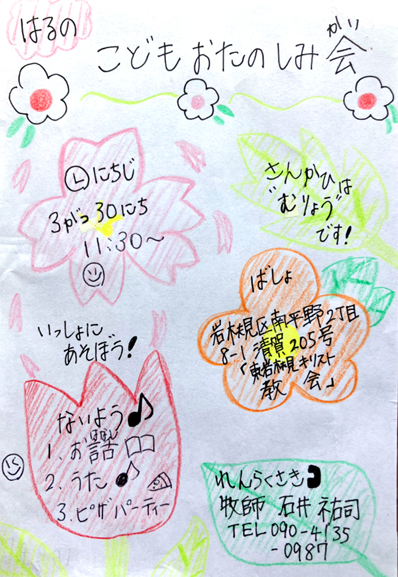 はるの
こどもおたのしみ会
かい
にちじ
3がつ30にち
11:30～
さんかひは
"むりょう"
です!
ばしょ
岩槻区南平野2丁目
8-1 清賀205号
「東岩槻キリスト
教会」
いっしょに
あそぼう!
ないよう♪
1.お話
2.うた♪
3.ピザパーティー
れんらくさき
牧師 石井 祐司
TEL 090-4135
-0987